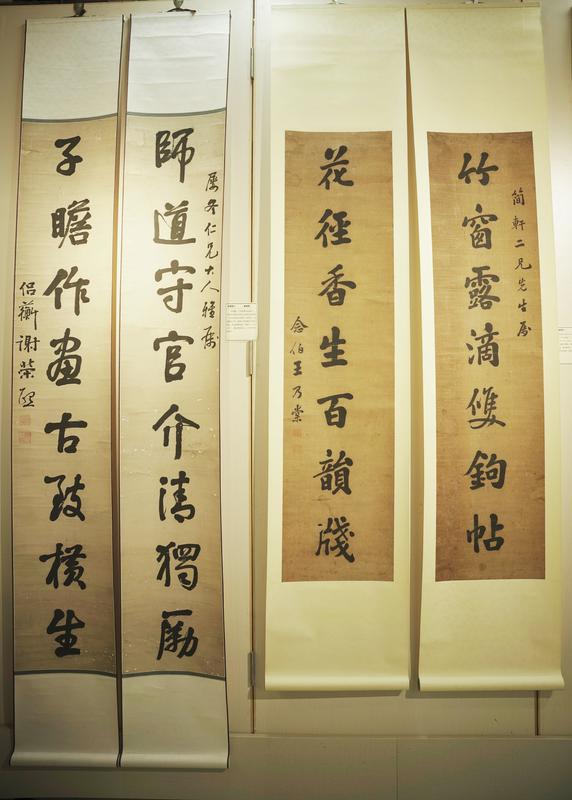 簡軒二兄先生屬
竹窗露滴雙鉤帖
花徑香生百韻牋
念伯王乃棠
仁兄大人雅屬
師道守官介清獨勵
子瞻作畫古致橫生
侶蘅謝榮